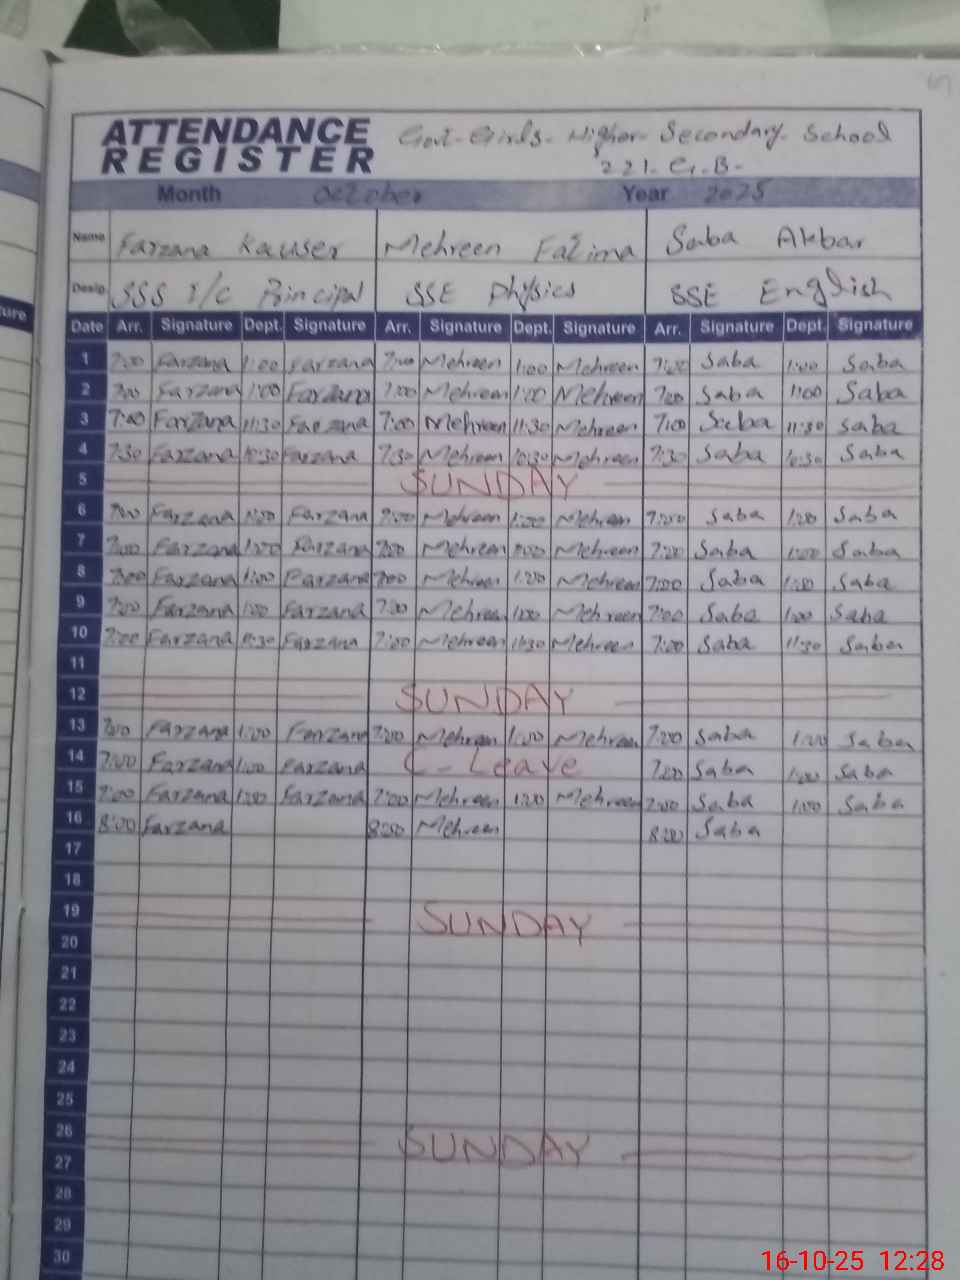 ATTENDANCE REGISTER
Govt. Girls. Higher Secondary School
221. G.B.
Month October Year 2025
Name Farzana Kauser Mehreen Fatima Saba Akbar
Desig. SSS I/C Principal SSE Physics SSE English
Date Arr. Signature Dept. Signature Arr. Signature Dept. Signature Arr. Signature Dept. Signature
1 7:00 Farzana 1:00 Farzana 7:00 Mehreen 1:00 Mehreen 7:00 Saba 1:00 Saba
2 7:00 Farzana 1:00 Farzana 7:00 Mehreen 1:00 Mehreen 7:00 Saba 1:00 Saba
3 7:00 Farzana 11:30 Farzana 7:00 Mehreen 11:30 Mehreen 7:00 Saba 11:30 Saba
4 7:30 Farzana 10:30 Farzana 7:30 Mehreen 10:30 Mehreen 7:30 Saba 10:30 Saba
5 SUNDAY
6 7:00 Farzana 1:00 Farzana 7:00 Mehreen 1:00 Mehreen 7:00 Saba 1:00 Saba
7 7:00 Farzana 1:00 Farzana 7:00 Mehreen 1:00 Mehreen 7:00 Saba 1:00 Saba
8 7:00 Farzana 1:00 Farzana 7:00 Mehreen 1:00 Mehreen 7:00 Saba 1:00 Saba
9 7:00 Farzana 1:00 Farzana 7:00 Mehreen 1:00 Mehreen 7:00 Saba 1:00 Saba
10 7:00 Farzana 11:30 Farzana 7:00 Mehreen 11:30 Mehreen 7:00 Saba 11:30 Saba
11
12 SUNDAY
13 7:00 Farzana 1:00 Farzana 7:00 Mehreen 1:00 Mehreen 7:00 Saba 1:00 Saba
14 7:00 Farzana 1:00 Farzana C-Leave 7:00 Saba 1:00 Saba
15 7:00 Farzana 1:00 Farzana 7:00 Mehreen 1:00 Mehreen 7:00 Saba 1:00 Saba
16 8:00 Farzana 8:00 Mehreen 8:00 Saba
17
18
19 SUNDAY
20
21
22
23
24
25
26 SUNDAY
27
28
29
30
16-10-25 12:28